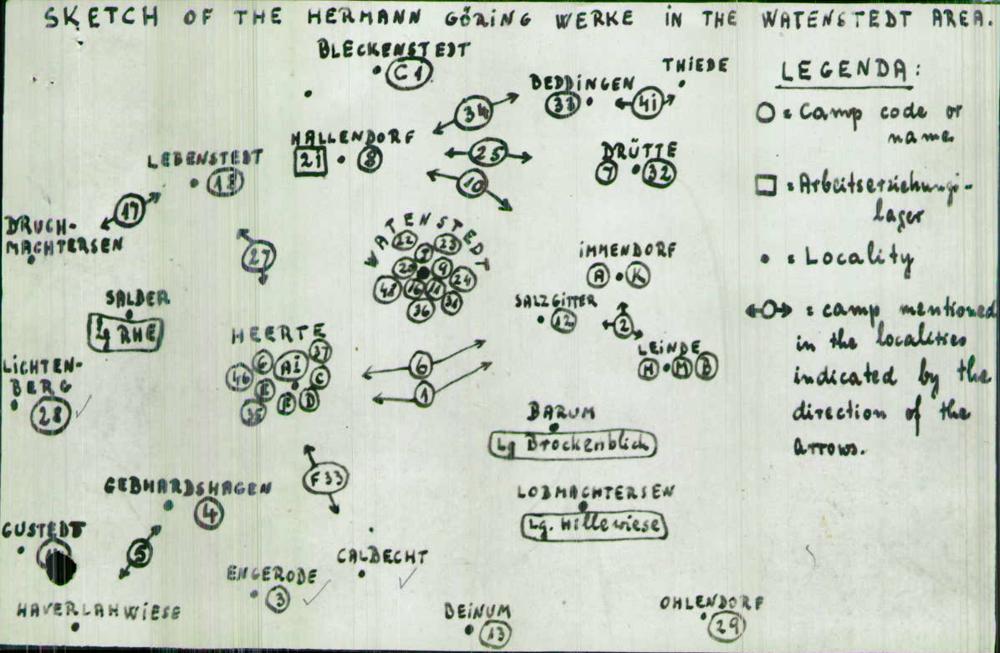 SKETCH OF THE HERMANN GÖRING WERKE IN THE WATENSTEDT AREA.
BLECKENSTEDT
C1
THIEDE
BEDDINGEN
33
41
34
HALLENDORF
21
8
25
10
DRÜTTE
7
32
LEBENSTEDT
18
17
DRUCH-
MACHTERSEN
27
WATENSTEDT
22
23
9
24
16
11
31
36
IMMENDORF
A
K
SALZGITTER
12
2
LEINDE
H
M
B
SALDER
Lg RHE
LICHTEN-
BERG
28
HEERTE
G
AI
37
46
E
C
35
F
D
6
1
BARUM
Lg Brockenblick
F33
GEBHARDSHAGEN
4
LOBMACHTERSEN
Lg. Hillewiese
GUSTEDT
5
CALBECHT
ENGERODE
3
HAVERLAHWIESE
BEINUM
13
OHLENDORF
29
LEGENDA:
= Camp code or
name
= Arbeitserziehungs-
lager
= Locality
= camp mentioned
in the localities
indicated by the
direction of the
arrows.